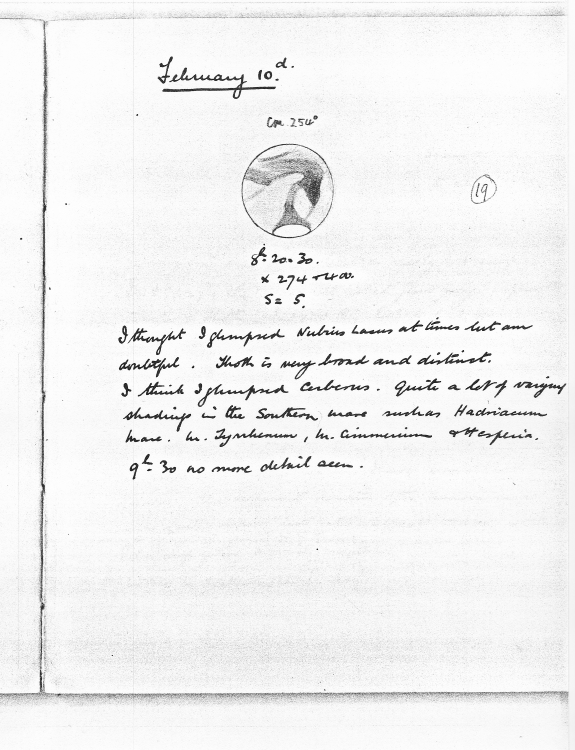 February 10.d.
Cm 254°
19
8h- 20 - 30.
x 274 + 400.
S = 5.
I thought I glimpsed Nubius Lacus at times but am
doubtful. Thoth is very broad and distinct.
I think I glimpsed Cerberus. Quite a lot of varying
shadings in the Southern mare such as Hadriacum
mare. M. Tyrrhenum, M. Cimmerium & Hesperia.
9h- 30 no more detail seen.